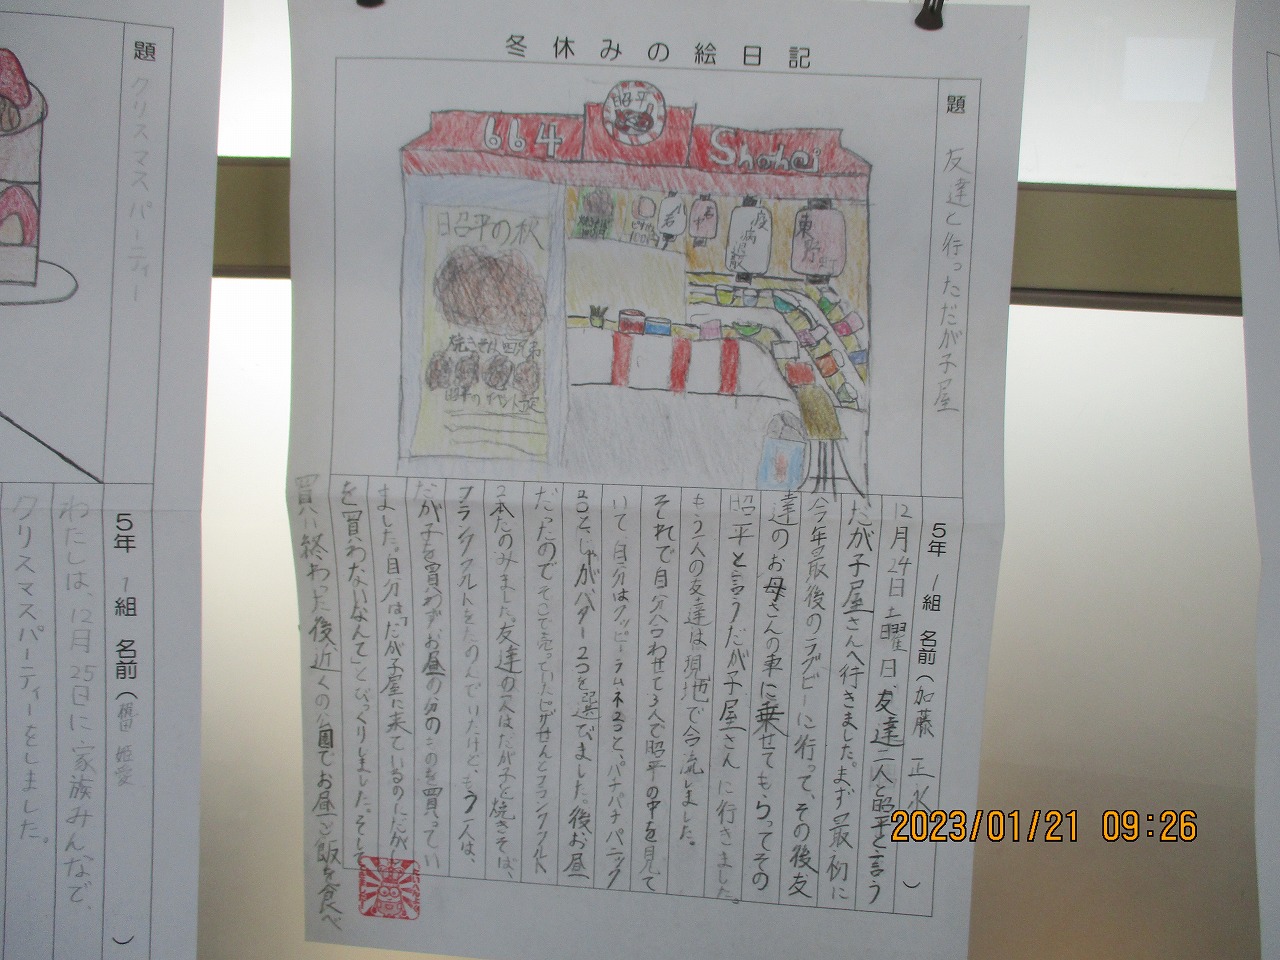 冬休みの絵日記
題 友達と行っただが子屋
664
昭平
Shohei
昭平の
焼きそば四兄弟
昭平の
疫病退散
東野町
5年 1組 名前(加藤 正
12月24日土曜日、友達二人と昭平と言う
だが子屋さんへ行きました。まず最初に
今年最後のラグビーに行って、その後友
達のお母さんの車に乗せてもらってその
昭平と言うだが子屋さんに行きました。
もう一人の友達は現地で合流しました。
それで自分合わせて3人で昭平の中を見て
いて、自分はクッピーラムネ2こと、パチパチパニック
2こと、じゃがバター2つを選びました。後お昼
だったのでそこで売っていたピザせんとフランクフルト
2本たのみました。友達の一人はだが子と焼きそば、
フランクフルトをたのんでいたけど、もう一人は、
だが子を買わずお昼の分のものを買ってい
ました。自分は「だが子屋に来ているのにだが
を買わないなんて」とびっくりしました。そして
買い終わった後、近くの公園でお昼ご飯を食べ
題 クリスマスパーティー
5年 1組 名前(
姫愛
)
わたしは、12月25日に家族みんなで、
クリスマスパーティーをしました。
2023/01/21 09:26